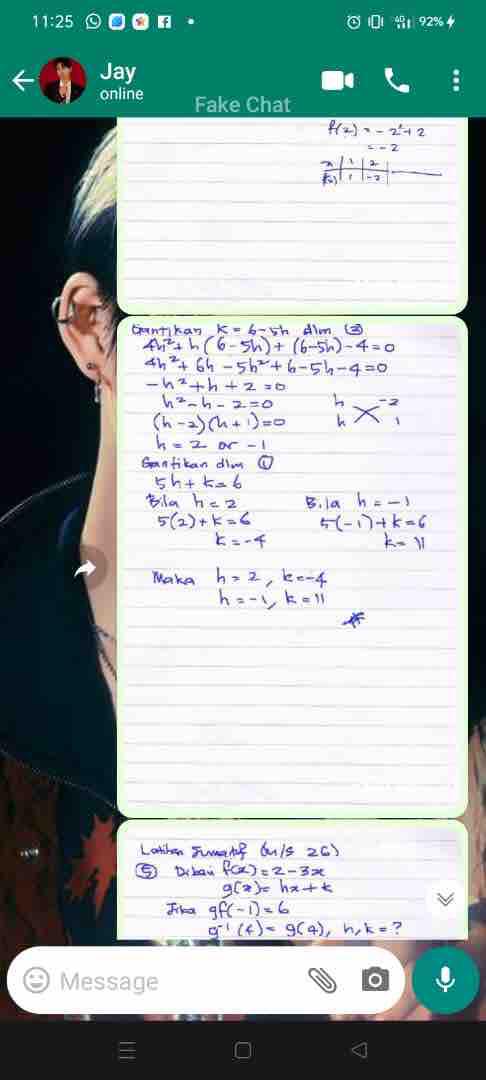 11:25
4G
92%
Jay
online
Fake Chat
f(2) = - 2² + 2
= - 2
x | 1 | 2
f(x) | 1 | -2
Gantikan k = 6-5h dlm (3)
4h² + h (6-5h) + (6-5h) - 4 = 0
4h² + 6h - 5h² + 6 - 5h - 4 = 0
-h² + h + 2 = 0
h² - h - 2 = 0
h -2
(h-2)(h+1) = 0
h 1
h = 2 or -1
Gantikan dlm (1)
5h + k = 6
Bila h = 2
5(2) + k = 6
k = -4
Bila h = -1
5(-1) + k = 6
k = 11
Maka h = 2, k = -4
h = -1, k = 11
Latihan Sumatif (m/s 26)
(5) Diberi f(x) = 2 - 3x
g(x) = hx + k
Jika gf(-1) = 6
g⁻¹(4) = g(4), h, k = ?
Message